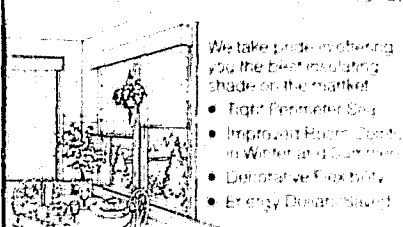 We take pride in offering
you the best insulating
shade on the martket
• Tight Perimeter Seal
• Improved Room Comfort
in Winter and Summer
• Decorative Flexibility
• Energy Dollars Saved